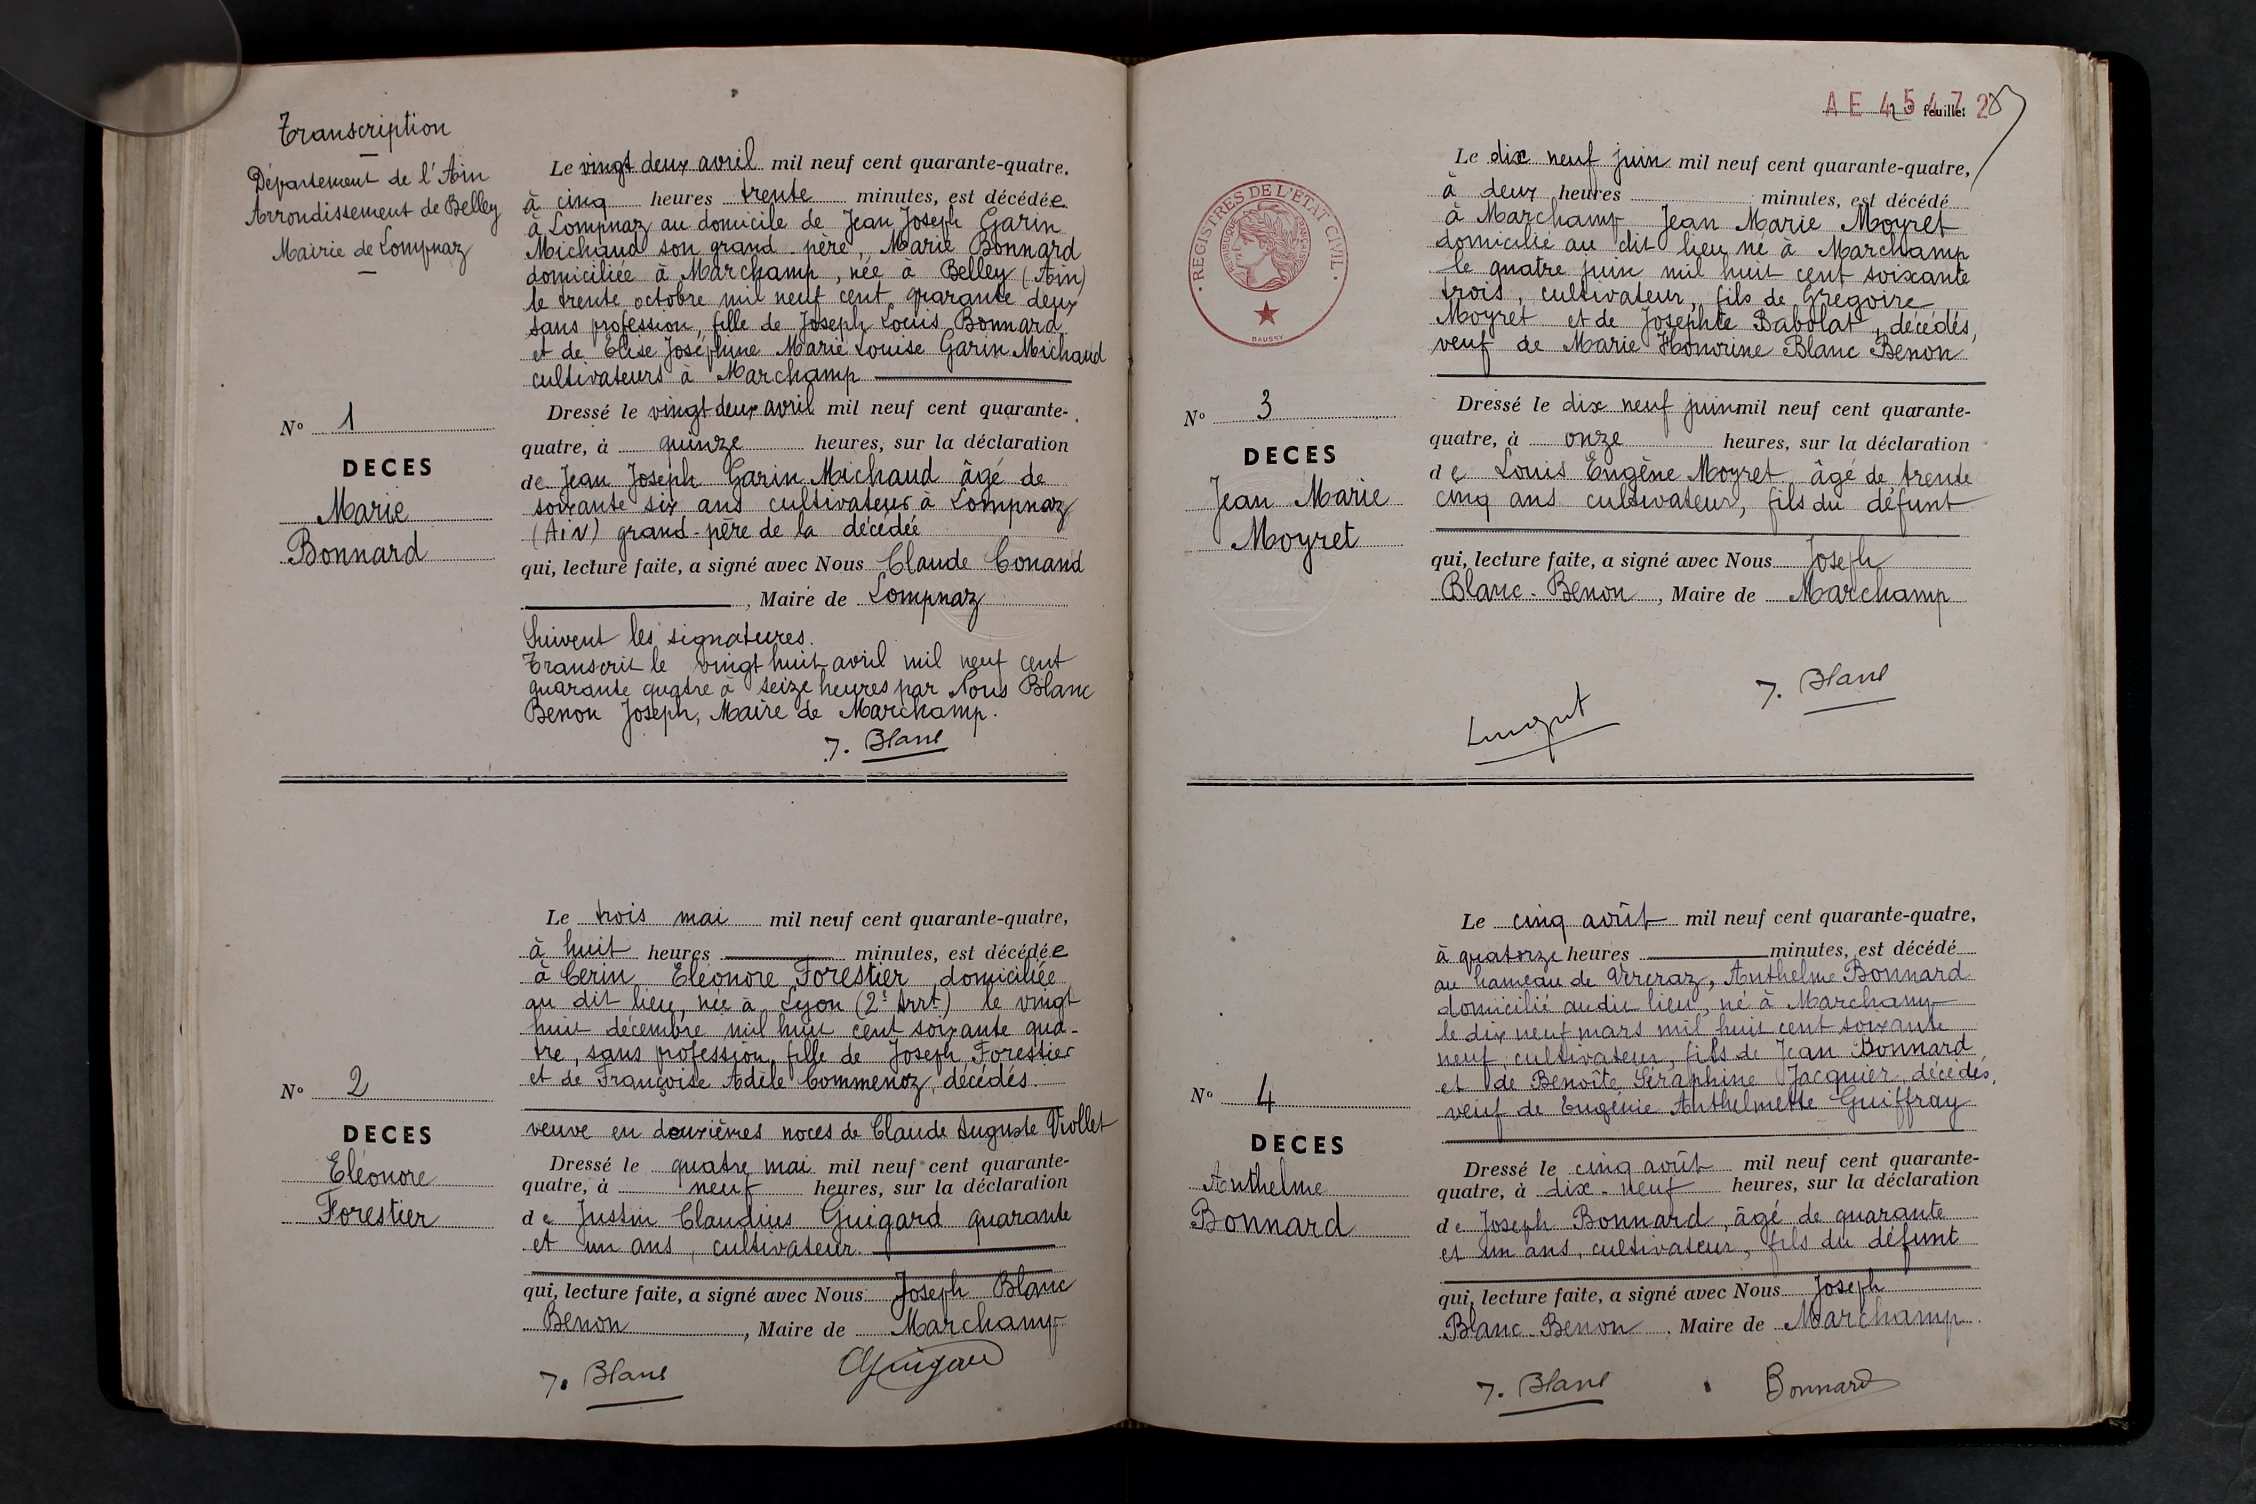 Transcription
Département de l'Ain
Arrondissement de Belley
Mairie de Lompnaz
Le vingt deux avril mil neuf cent quarante-quatre,
à cinq heures trente minutes, est décédée
à Lompnaz au domicile de Jean Joseph Garin
Michaud son grand-père, Marie Bonnard
domiciliée à Marchamp, née à Belley (Ain)
le trente octobre mil neuf cent quarante deux
sans profession, fille de Joseph Louis Bonnard
et de Elise Joséphine Marie Louise Garin Michaud
cultivateurs à Marchamp
N° 1
DECES
Marie
Bonnard
Dressé le vingt deux avril mil neuf cent quarante-
quatre, à quinze heures, sur la déclaration
de Jean Joseph Garin Michaud âgé de
soixante six ans cultivateur à Lompnaz
(Ain) grand-père de la décédée
qui, lecture faite, a signé avec Nous Claude Conand
, Maire de Lompnaz
Suivent les signatures.
Transcrit le vingt huit avril mil neuf cent
quarante quatre à seize heures par Nous Blanc
Benon Joseph, Maire de Marchamp.
J. Blanc
Le trois mai mil neuf cent quarante-quatre,
à huit heures minutes, est décédée
à Cerin Eléonore Forestier domiciliée
au dit lieu, née à Lyon (2e Arrt) le vingt
huit décembre mil huit cent soixante qua-
tre, sans profession, fille de Joseph Forestier
et de Françoise Adèle Commenoz, décédés.
veuve en deuxièmes noces de Claude Auguste Viollet
N° 2
DECES
Eléonore
Forestier
Dressé le quatre mai mil neuf cent quarante-
quatre, à neuf heures, sur la déclaration
de Justin Claudius Guigard quarante
et un ans, cultivateur.
qui, lecture faite, a signé avec Nous Joseph Blanc
Benon, Maire de Marchamp
J. Blanc
AE 4547 2
2e feuillet
REGISTRES DE L'ETAT CIVIL
REPUBLIQUE FRANÇAISE
BAUSSY
Le dix neuf juin mil neuf cent quarante-quatre,
à deux heures minutes, est décédé
à Marchamp Jean Marie Moyret
domicilié au dit lieu né à Marchamp
le quatre juin mil huit cent soixante
trois, cultivateur, fils de Gregoire
Moyret et de Josephte Babolat, décédés,
veuf de Marie Honorine Blanc Benon
N° 3
DECES
Jean Marie
Moyret
Dressé le dix neuf juin mil neuf cent quarante-
quatre, à onze heures, sur la déclaration
de Louis Eugène Moyret âgé de trente
cinq ans cultivateur, fils du défunt
qui, lecture faite, a signé avec Nous Joseph
Blanc-Benon, Maire de Marchamp
J. Blanc
Le cinq août mil neuf cent quarante-quatre,
à quatorze heures minutes, est décédé
au hameau de Vercraz, Anthelme Bonnard
domicilié au dit lieu, né à Marchamp
le dix neuf mars mil huit cent soixante
neuf, cultivateur, fils de Jean Bonnard
et de Benoîte Séraphine Jacquier, décédés,
veuf de Eugénie Anthelmette Guiffray
N° 4
DECES
Anthelme
Bonnard
Dressé le cinq août mil neuf cent quarante-
quatre, à dix-neuf heures, sur la déclaration
de Joseph Bonnard, âgé de quarante
et un ans, cultivateur, fils du défunt
qui, lecture faite, a signé avec Nous Joseph
Blanc-Benon, Maire de Marchamp.
J. Blanc
Bonnard